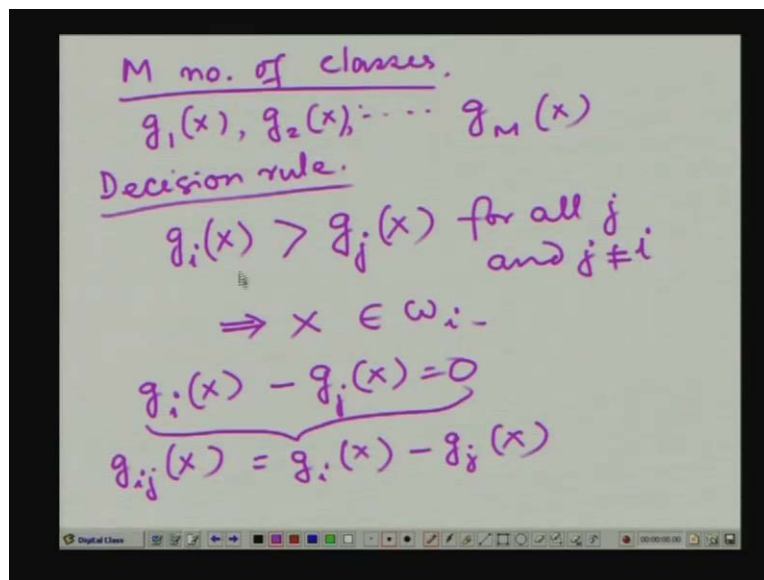 M no. of classes.
g₁(x), g₂(x), ···· g_M(x)
Decision rule.
g_i(x) > g_j(x) for all j
and j ≠ i
⇒ x ∈ ω_i -
g_i(x) - g_j(x) = 0
g_ij(x) = g_i(x) - g_j(x)
Digital Class 00:00:00.00